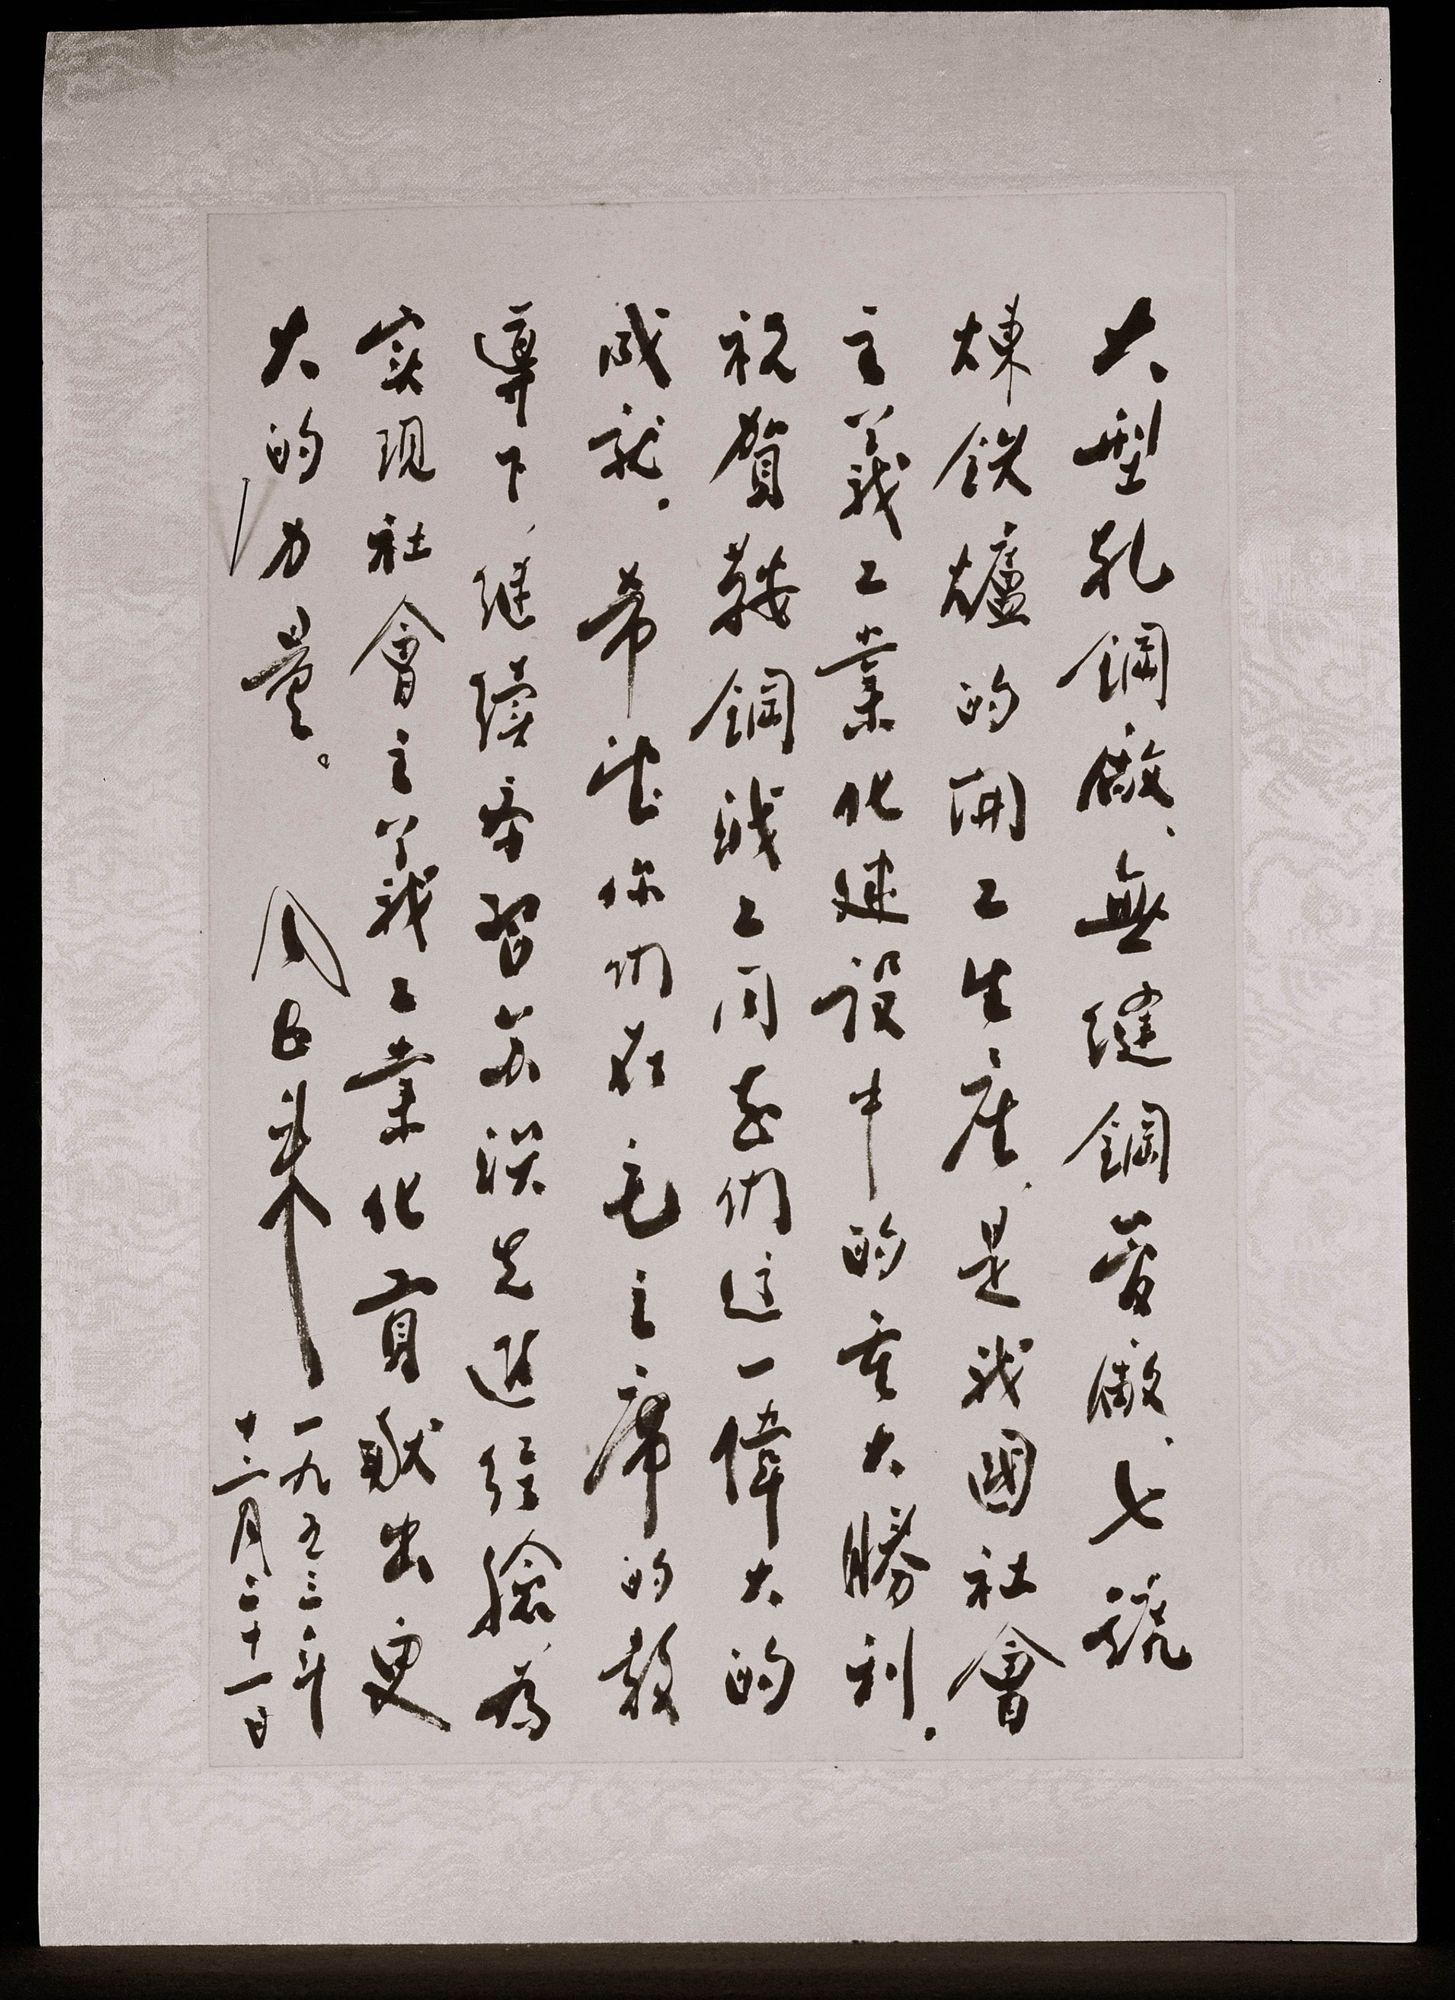 大型軋鋼廠、無縫鋼管廠、七號
煉鉄爐的開工生產、是我國社會
主義工業化建設中的重大勝利.
祝賀鞍鋼职工同志们这一偉大的
成就.希望你们在毛主席的教
導下、继續学習苏联先進经驗、為
实现社會主義工業化貢献出更
大的力量。
周恩来
一九五三年
十二月二十一日